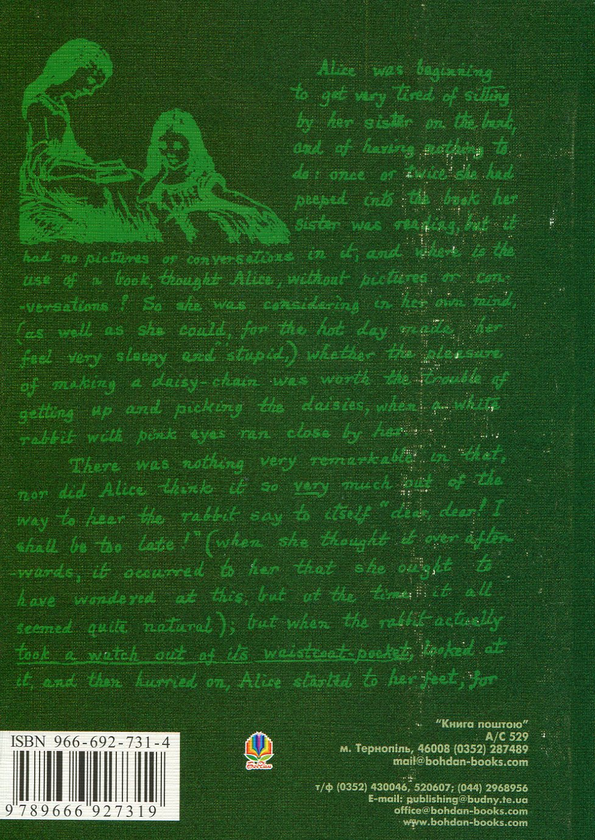 Alice was beginning
to get very tired of sitting
by her sister on the bank,
and of having nothing to
do: once or twice she had
peeped into the book her
sister was reading, but it
had no pictures or conversations in it, and where is the
use of a book, thought Alice, without pictures or con-
-versations? So she was considering in her own mind,
(as well as she could, for the hot day made her
feel very sleepy and stupid,) whether the pleasure
of making a daisy-chain was worth the trouble of
getting up and picking the daisies, when a white
rabbit with pink eyes ran close by her.
There was nothing very remarkable in that,
nor did Alice think it so very much out of the
way to hear the rabbit say to itself "dear, dear! I
shall be too late!" (when she thought it over after-
-wards, it occurred to her that she ought to
have wondered at this, but at the time it all
seemed quite natural); but when the rabbit actually
took a watch out of its waistcoat-pocket, looked at
it, and then hurried on, Alice started to her feet, for
"Книга поштою"
А/С 529
м. Тернопіль, 46008 (0352) 287489
mail@bohdan-books.com
ISBN 966-692-731-4
9 789666 927319
Богдан
т/ф (0352) 430046, 520607; (044) 2968956
E-mail: publishing@budny.te.ua
office@bohdan-books.com
www.bohdan-books.com